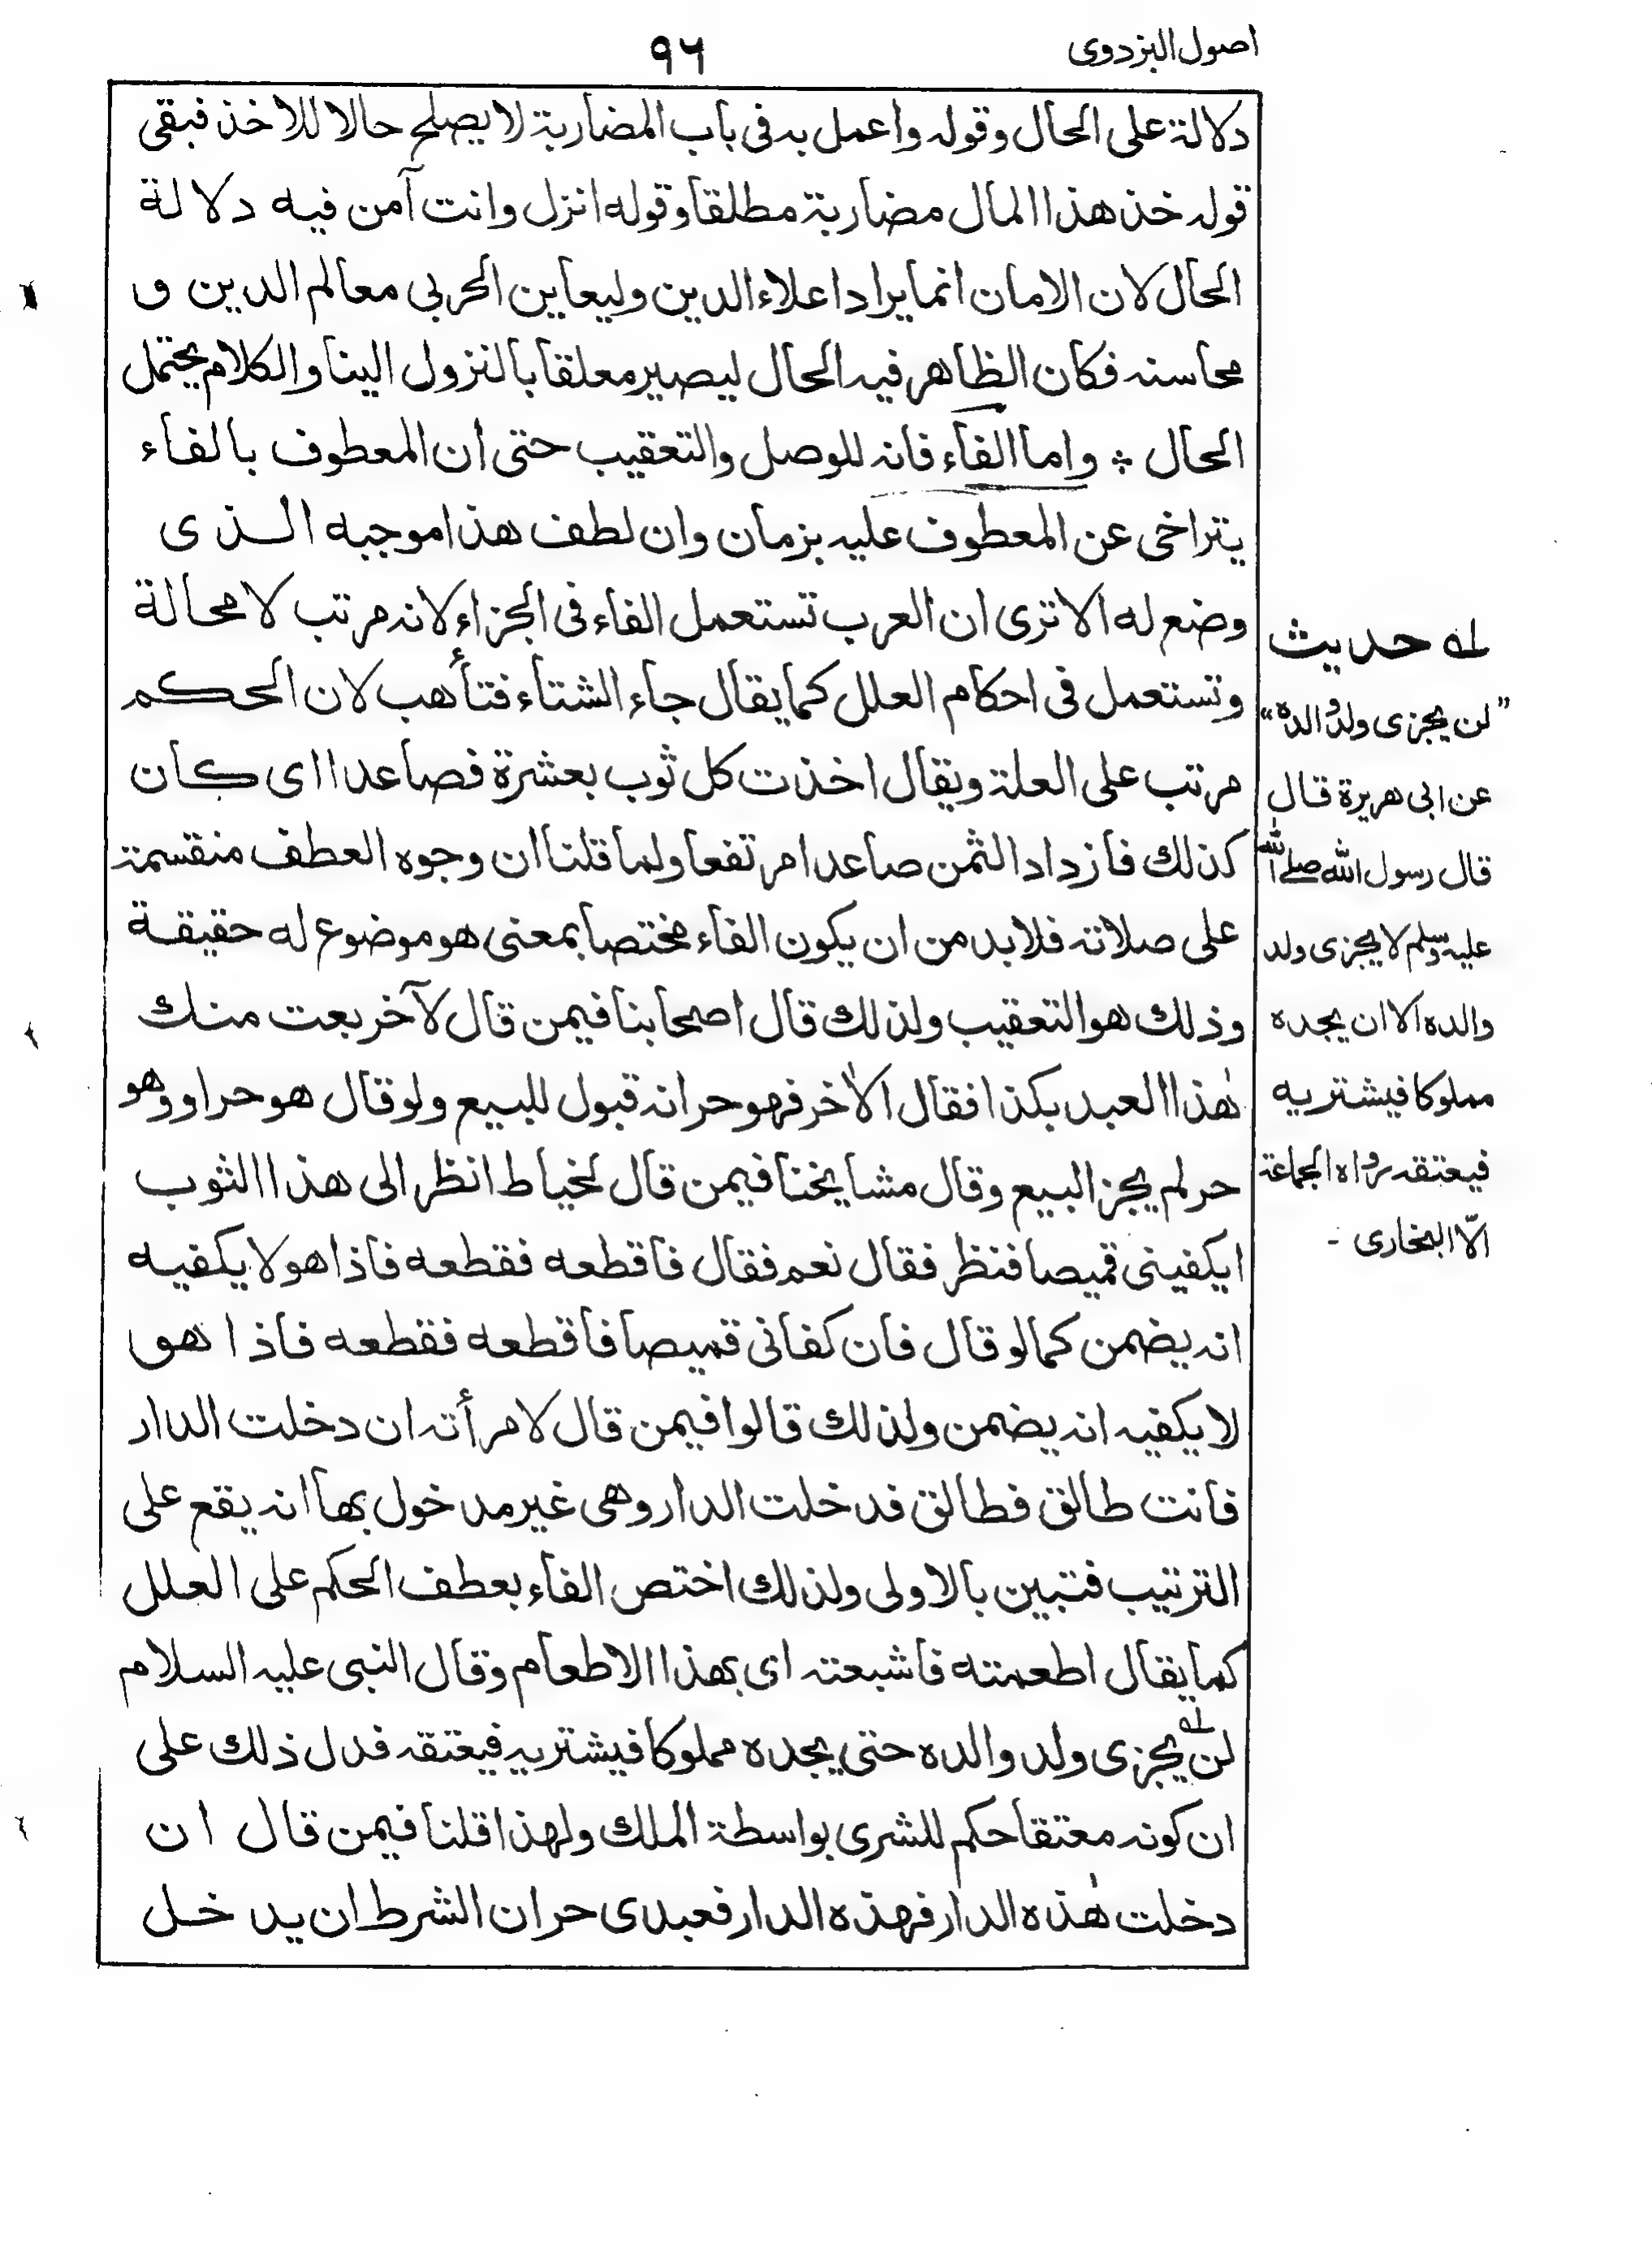 اصول البزدوى
٩٦
دلالة على الحال وقوله واعمل به فى باب المضاربة لا يصلح حالا للاخذ فبقى
قوله خذ هذا المال مضاربة مطلقا وقوله انزل وانت آمن فيه دلالة
الحال لان الامان انما يراد اعلاء الدين وليعاين الحربى معالم الدين و
محاسنه فكان الظاهر فيه الحال ليصير معلقا بالنزول الينا والكلام يحتمل
الحال ÷ واما الفاء فانه للوصل والتعقيب حتى ان المعطوف بالفاء
يتراخى عن المعطوف عليه بزمان وان لطف هذا موجبه الذى
وضع له الا ترى ان العرب تستعمل الفاء فى الجزاء لانه مرتب لا محالة
وتستعمل فى احكام العلل كما يقال جاء الشتاء فتأهب لان الحكم
مرتب على العلة ويقال اخذت كل ثوب بعشرة فصاعدا اى كان
كذلك فازداد الثمن صاعدا مرتفعا ولما قلنا ان وجوه العطف منقسمة
على صلاته فلا بد من ان يكون الفاء مختصا بمعنى هو موضوع له حقيقة
وذلك هو التعقيب ولذلك قال اصحابنا فيمن قال لآخر بعت منك
هٰذا العبد بكذا فقال الاٰخر فهو حر انه قبول للبيع ولو قال هو حر او وهو
حر لم يجز البيع وقال مشايخنا فيمن قال لخياط انظر الى هذا الثوب
ايكفينى قميصا فنظر فقال نعم فقال فاقطعه فقطعه فاذا هو لا يكفيه
انه يضمن كما لو قال فان كفانى قميصا فاقطعه فقطعه فاذا هو
لا يكفيه انه يضمن ولذلك قالوا فيمن قال لامرأته ان دخلت الدار
فانت طالق فطالق فدخلت الدار وهى غير مدخول بها انه يقع على
الترتيب فتبين بالاولى ولذلك اختص الفاء بعطف الحكم على العلل
كما يقال اطعمته فاشبعته اى بهذا الاطعام وقال النبى عليه السلام
لن يجزى ولد والده حتى يجده مملوكا فيشتريه فيعتقه فدل ذلك على
ان كونه معتقا حكم للشرى بواسطة الملك ولهذا قلنا فيمن قال ان
دخلت هٰذه الدار فهذه الدار فعبدى حر ان الشرط ان يدخل
له حديث
"لن يجزى ولد والده"
عن ابى هريرة قال
قال رسول الله صلى الله
عليه وسلم لا يجزى ولد
والده الا ان يجده
مملوكا فيشتريه
فيعتقه رواه الجماعة
الّا البخارى -